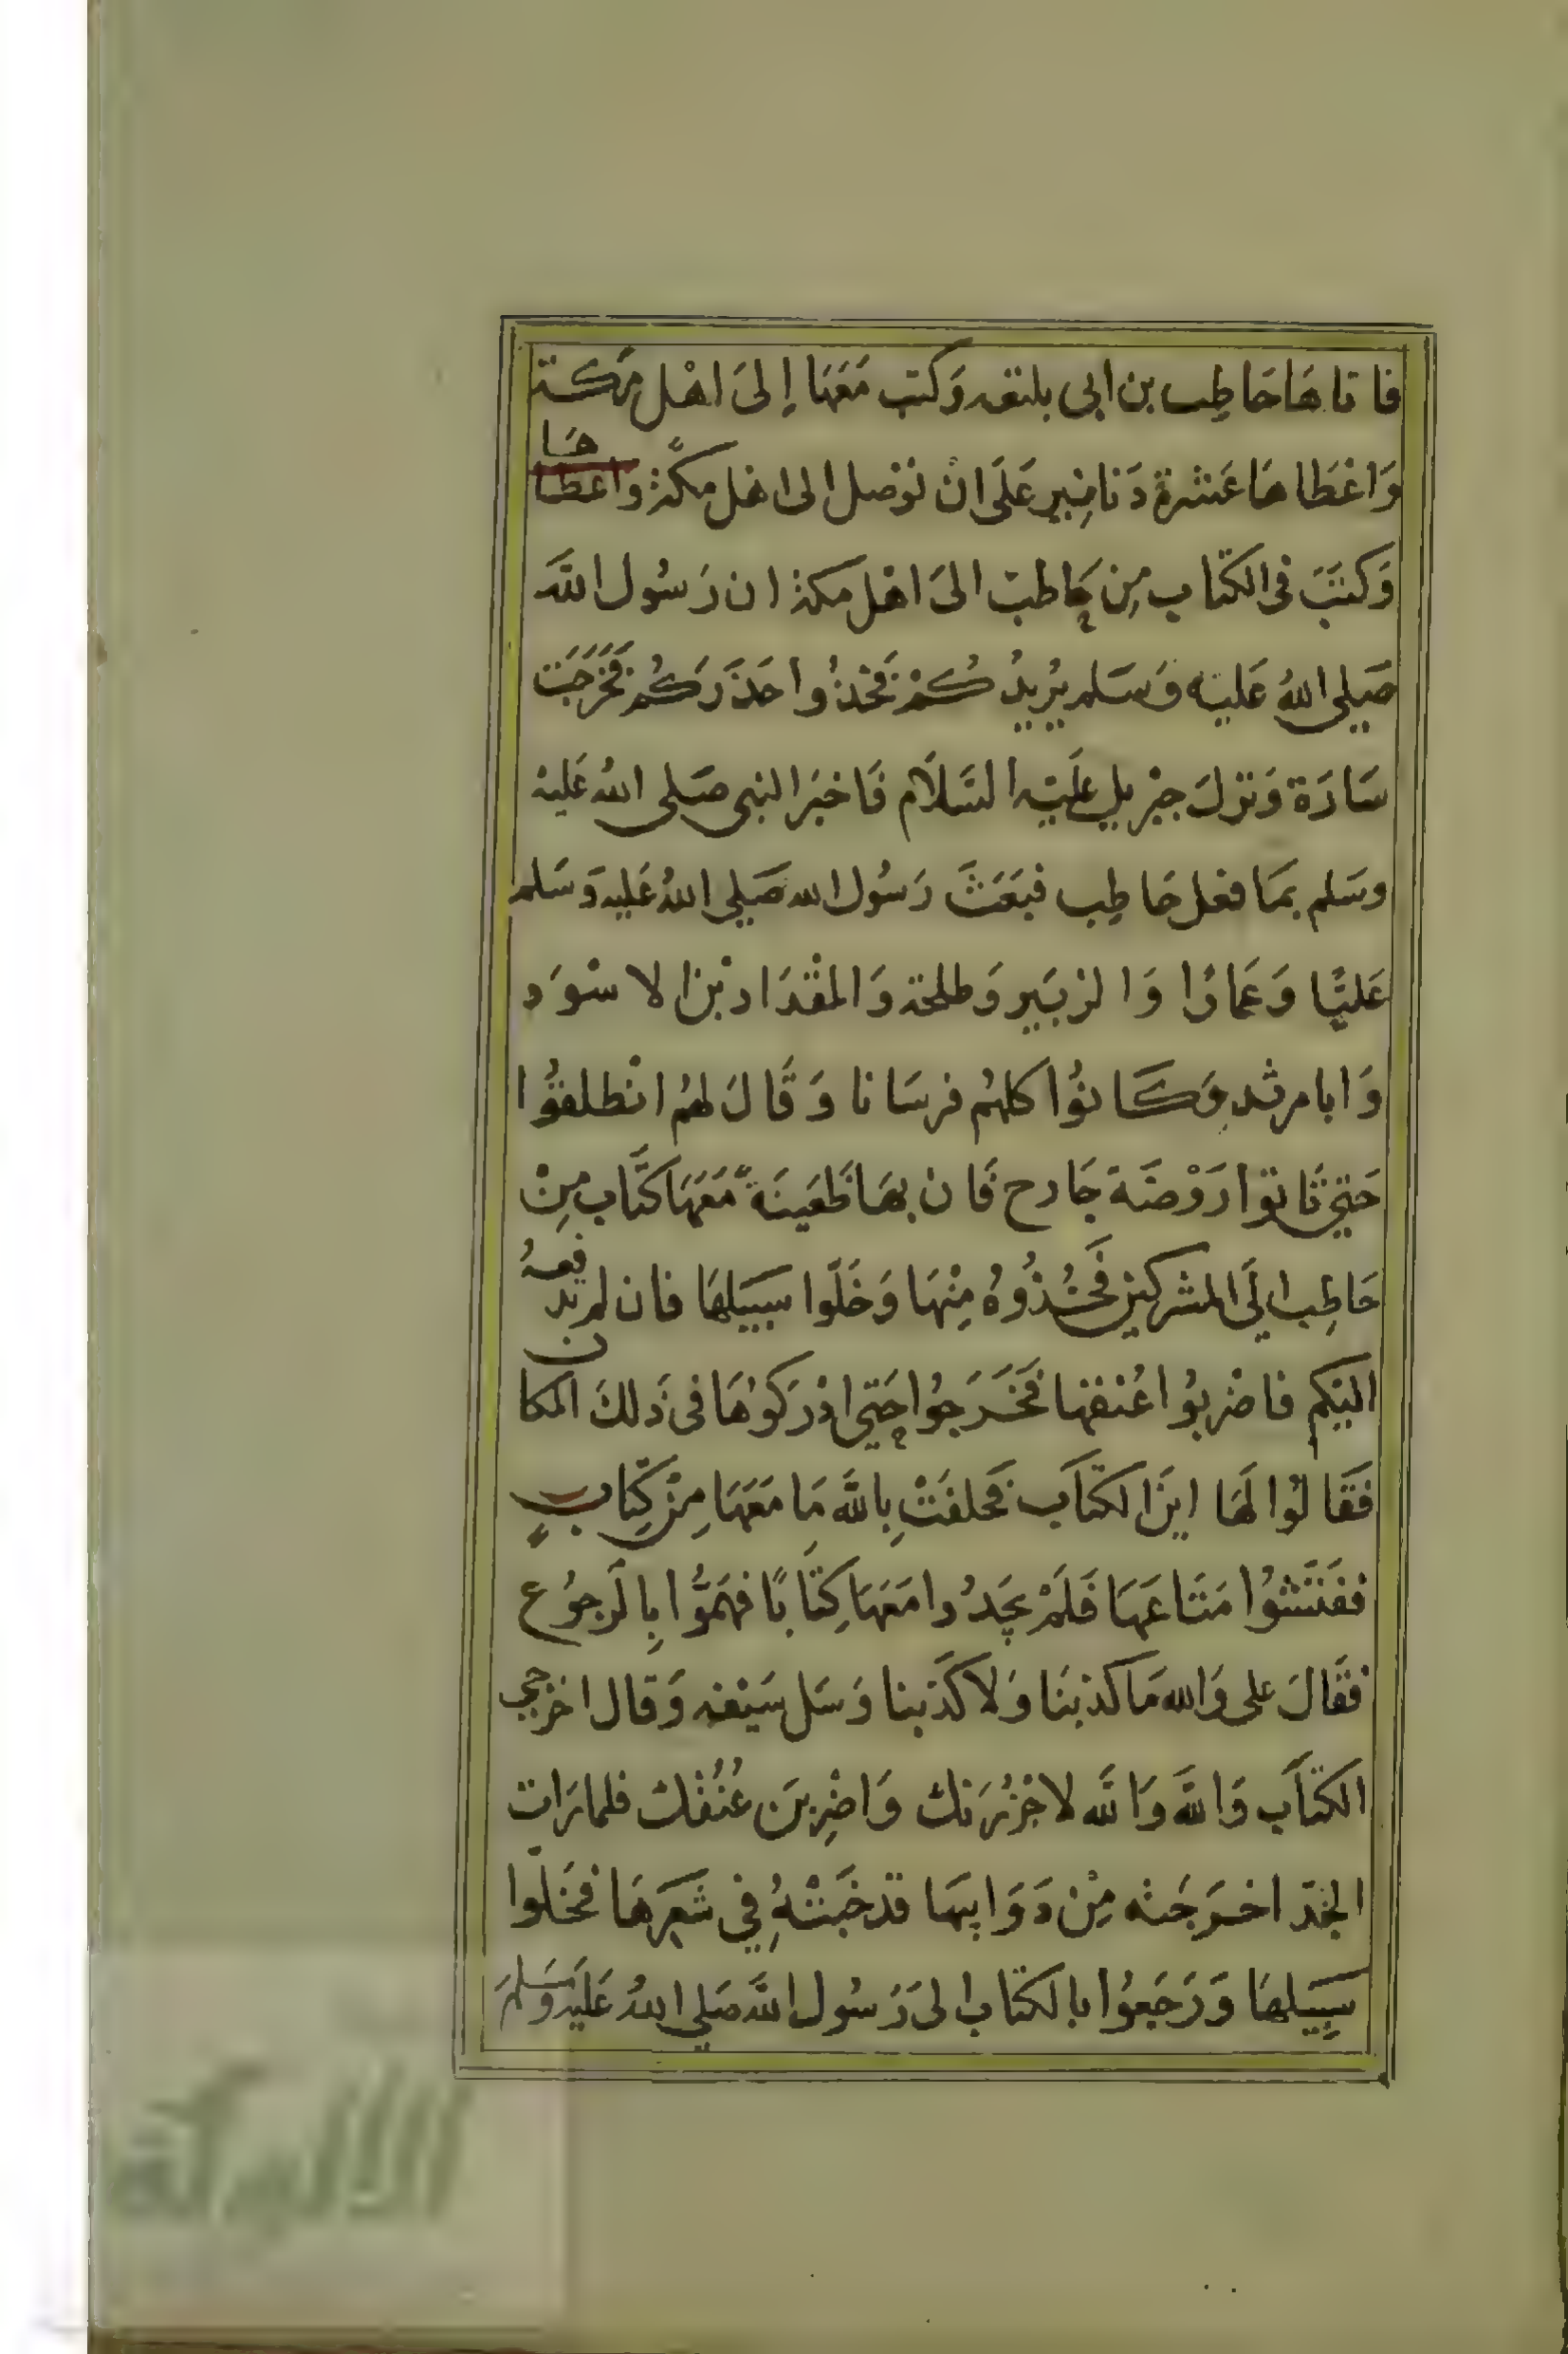 فاتاها حَاطِب بن ابى بلتعه وَكتب مَعَهَا إلىَ اهْل مَكة
وَاعْطَاهَا عَشرة دَنانِير عَلَى انْ توْصل الى اهْل مكة واعطاها
وَكتبَ فى الكتاب مِن حَاطب الىَ اهْل مكة ان رَسُول اللَّه
صَلى اللهُ عَليْه وَسَلم يُريدُكُمْ فَخُذوُا حَذَرَكُم فَخَرَجَت
سَارَة وَنزلَ جبْريل عَليْه السَّلَام فَاخبَر النبى صَلى اللهُ عَليْه
وسَلم بمَا فعَل حَاطِب فبَعَثَ رَسُول الله صَلى اللهُ عَليه وَسَلم
عَليًّا وَعَمارًا وَالزبَير وَطلحة وَالمقْدَاد بْن الاسْوَد
وَابا مرثد وَكَانوُا كلهُم فرسَانا وَقَالَ لهُم انْطلقوُا
حَتي تَاتوا رَوْضَة خَارج فَان بهَا ظَعَينَةً مَعَهَا كتَاب مِنْ
حَاطِب الَى المشركين فَخُذُوُهُ مِنْهَا وَخَلّوا سَبيَلهَا فان لم يدفعهُ
اليْكم فاضْربوُا عُنقهَا فَخَرَجوُا حَتي ادْرَكوُهَا فى ذَلكَ المكان
فَقَالوُا لَهَا اينَ الكتَاب فَحلفَتْ بِاللَّه مَا مَعَهَا مِنْ كِتَابٍ
ففَتَشوُا مَتَاعَهَا فَلَمْ يجَدُوا مَعَهَا كِتَابًا فهَمَّوُا بِالرجوُع
فقَالَ على وَالله مَا كذبنَا وَلَا كَذبنا وَسَل سَيْفه وَقال اخرجي
الكتَاب وَاللَّه وَاللَّه لاجْزُرَنك وَاضْرِبَن عُنُقُك فلما رَات
الجَدّ اخرَجَته مِنْ دَوَايبهَا قد خَبَتْهُ فِي شَعَرهَا فَخَلوا
سَبِيَلهَا وَرَجَعوُا بالكتاب الىَ رَسُول اللَّه صَلي اللهُ عَليْه وَسَلمَ
الألوكة